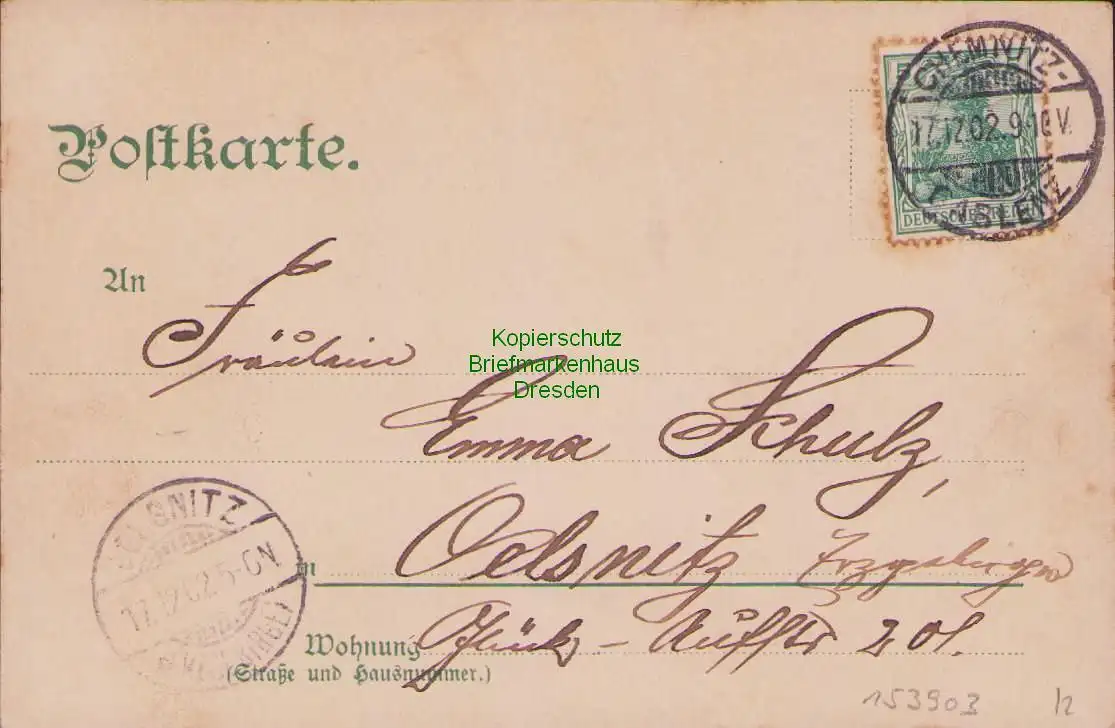 Postkarte.
CHEMNITZ-
17.12.02. 9-10 V.
DEUTSCHES REICH
An
Fräulein
Kopierschutz
Briefmarkenhaus
Dresden
Emma Schulz,
in Oelsnitz Erzgebirge
OELSNITZ
17.12.02. 5-6N
Wohnung Glück-Aufstr 201.
(Straße und Hausnummer.)
153903 12